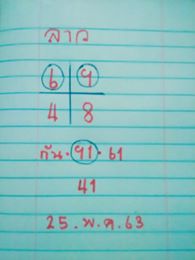 ลาว
6 9
4 8
กัน. 91. 61
41
25. พ. ค. 63